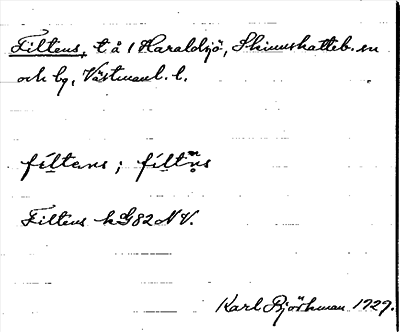 Filtens, t å 1 Haraldsjö, Skinnskatteb. sn
och bg, Västmanl. l.
filtens; filtn̥s
Filtens hG82NV.
Karl Björkman 1929.